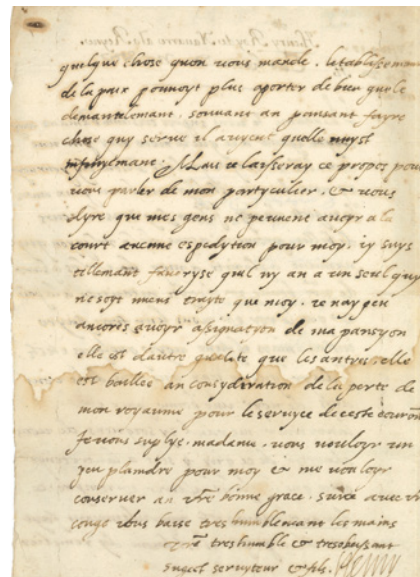 quelque chose quon vous mande. letablissemant
de la paix pouuoyt plus aporter de bien que le
demantelemant. souuant an pansant fayre
chose quy serue il auyent quelle nuyst
infinymant. Mais ie laisseray ce propos pour
vous parler de mon partyculier. & vous
dyre que mes gens ne peuuent auoyr a la
court aucune espedytion pour moy. iy suys
tellemant fauoryse quil ny an a un seul quy
ne soyt mieus trayte que moy. ie nay peu
ancores auoyr assignatyon de ma pansyon
elle est dautre qualite que les autres. elle
est baillee an consyderation de la perte de
mon royaume pour le seruyce de ceste couronne
Je vous suplye. madame. vous vouloyr un
peu plaindre pour moy & me vouloyr
conseruer an vre bonne grace. sur ce auec vre
conge vous baise tres humblemant les mains
Vre tres humble & tres obeissant
suget seruyteur & fils. Henry